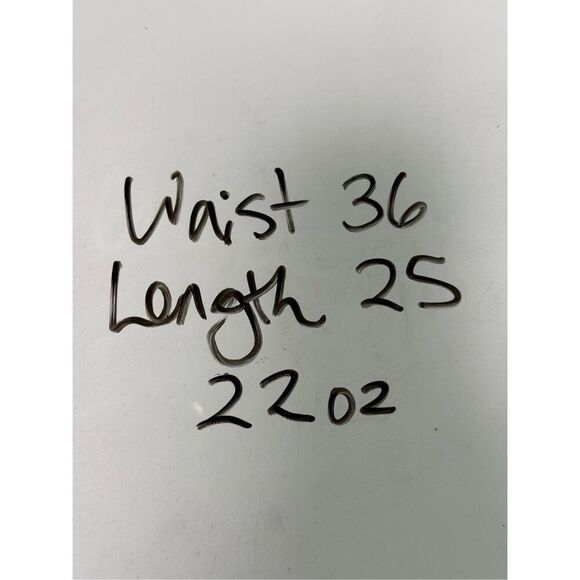 Waist 36
Length 25
22oz